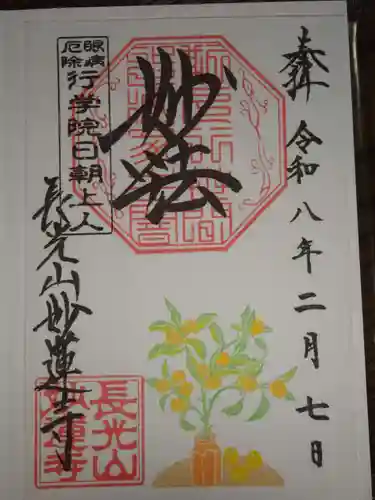 奉拝
令和八年二月七日
妙法
眼病
厄除
行学院日朝上人
長光山妙蓮寺
長光山
妙蓮寺